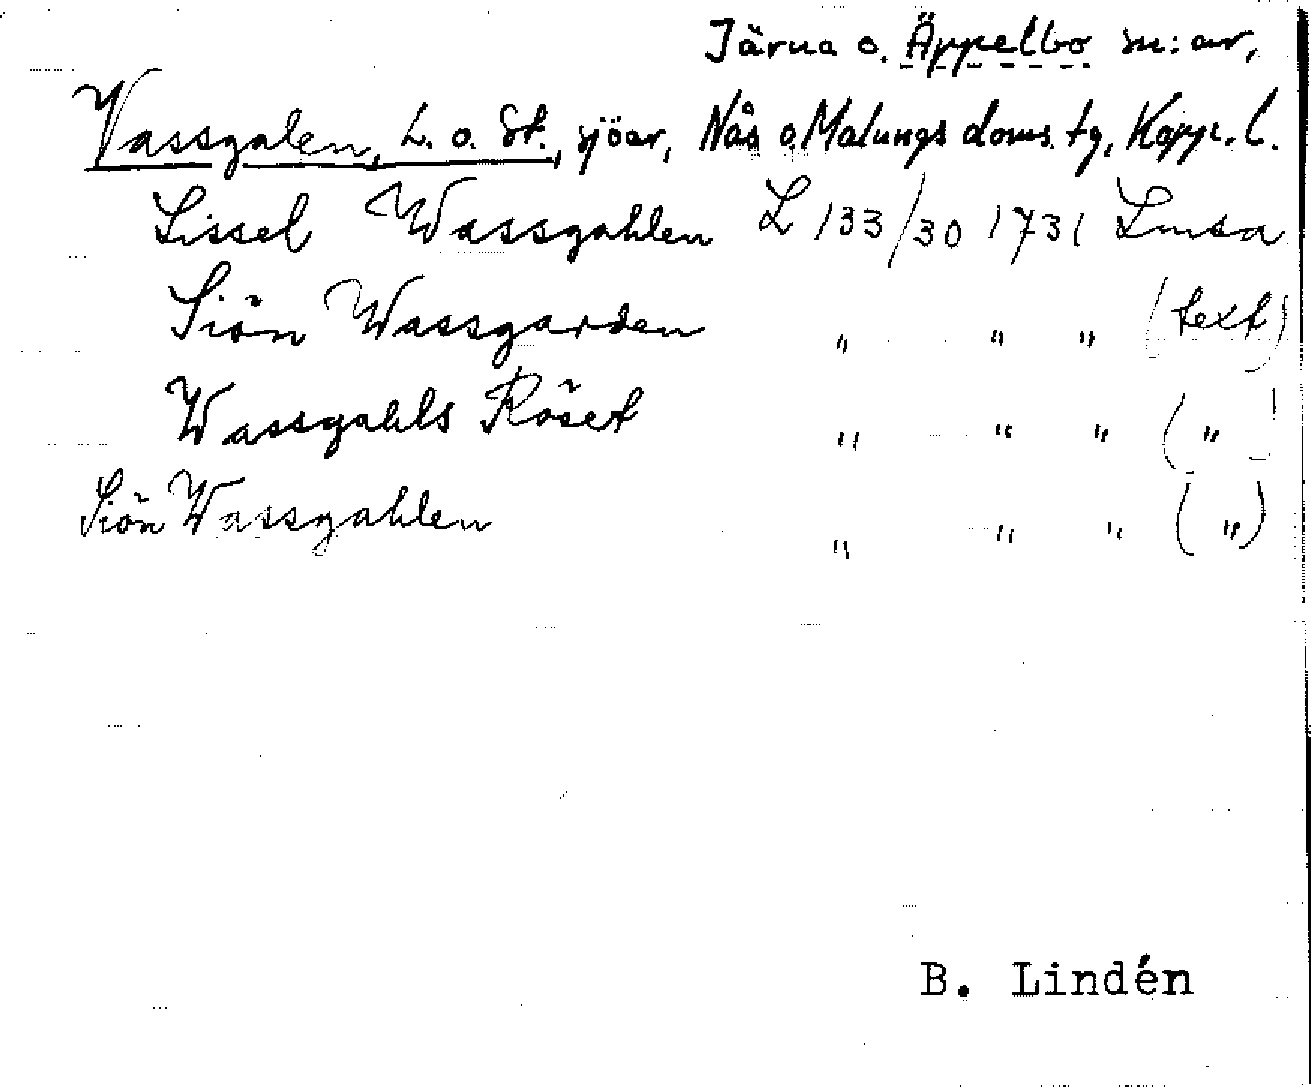 Järna o. Äppelbo sn:ar,
Vassgalen, L. o. St., sjöar, Nås o Malungs doms. tg, Kopp. l.
Lissel Wassgahlen L 133/30 1731 Lmsa
Siön Wassgarden " " " (text)
Wassgahls Röset " " " ( " )
Siön Wassgahlen " " " ( " )
B. Lindén